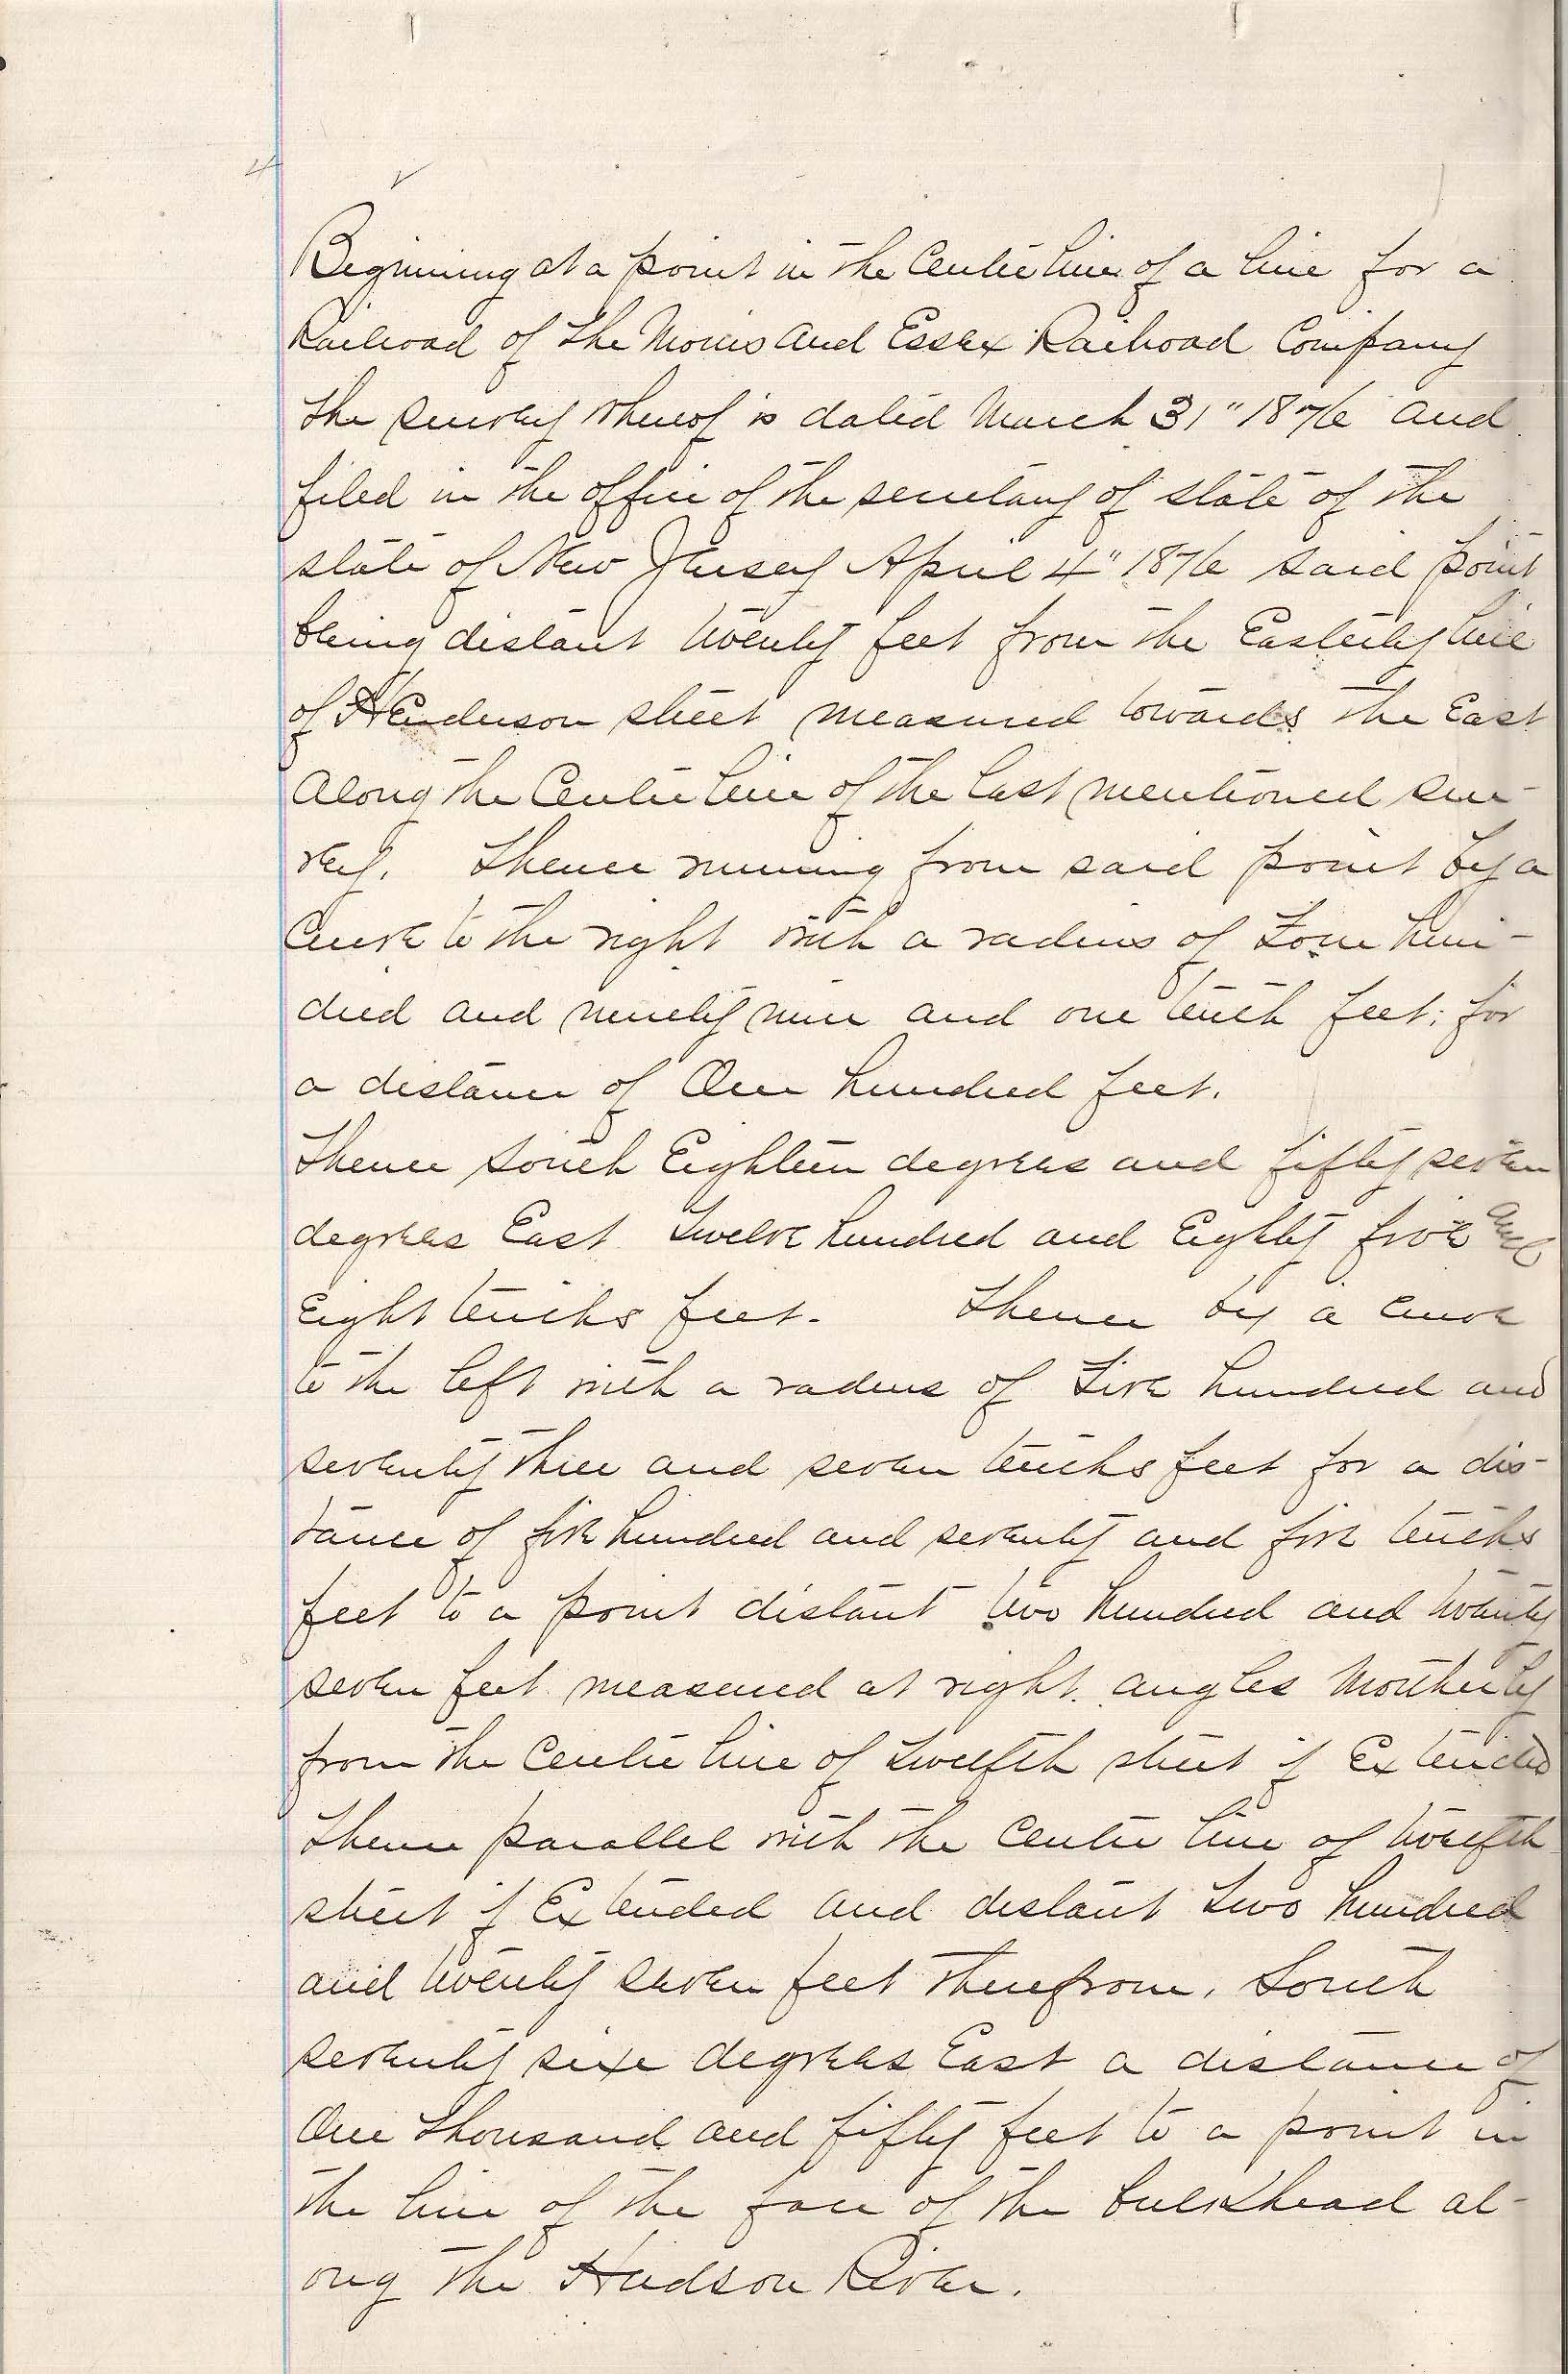 Beginning at a point in the Centre line of a line for a
Railroad of the Morris and Essex Railroad Company
the survey thereof is dated March 31" 1876 and
filed in the office of the secretary of state of the
state of New Jersey April 4" 1876 said point
being distant twenty feet from the Easterly line
of Henderson street measured towards the East
along the Centre line of the last mentioned sur-
vey. Thence running from said point by a
Curve to the right with a radius of Four hun-
dred and ninety nine and one tenth feet; for
a distance of One hundred feet.
Thence South Eighteen degrees and fifty seven
degrees East Twelve hundred and Eighty five and
Eight tenths feet. Thence by a curve
to the left with a radius of Five hundred and
seventy three and seven tenths feet for a dis-
tance of five hundred and seventy and five tenths
feet to a point distant two hundred and twenty
seven feet measured at right angles Northerly
from the Centre line of Twelfth street if Extended
Thence parallel with the Centre line of twelfth
street if Extended and distant two hundred
and twenty seven feet therefrom, South
seventy six degrees East a distance of
One thousand and fifty feet to a point in
the line of the face of the bulkhead al-
ong the Hudson River.